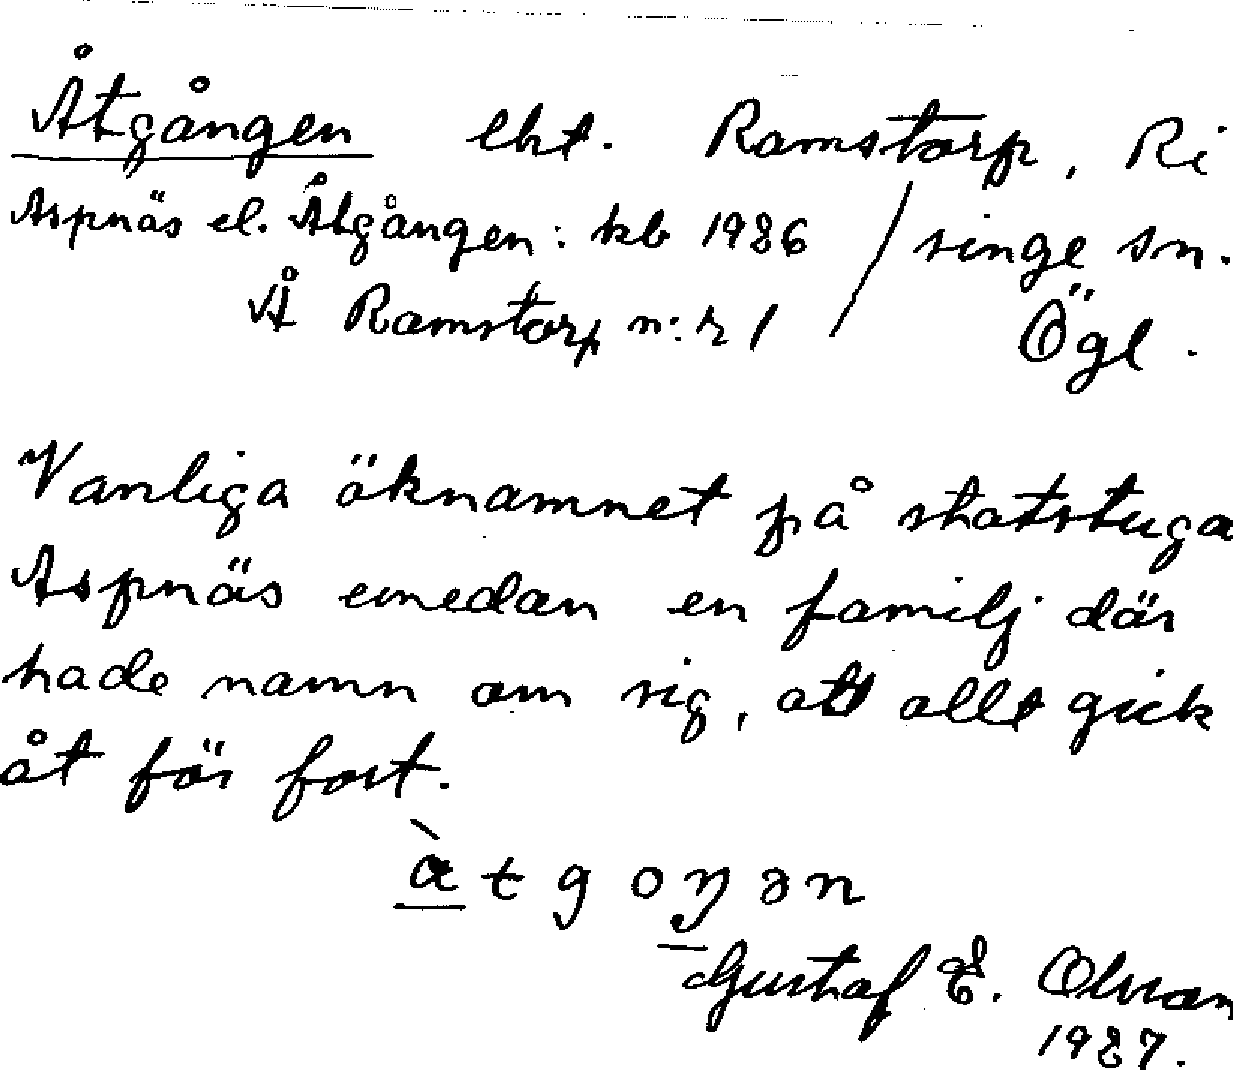 Åtgången lht. Ramstorp, Ri
Aspnäs el. Åtgången: kb 1926 / singe sn.
Å Ramstorp n:r 1 Ögl.
Vanliga öknamnet på statstuga
Aspnäs emedan en familj där
hade namn om sig, att allt gick
åt för fort.
àtgoŋən
Gustaf E. Olsson
1927.